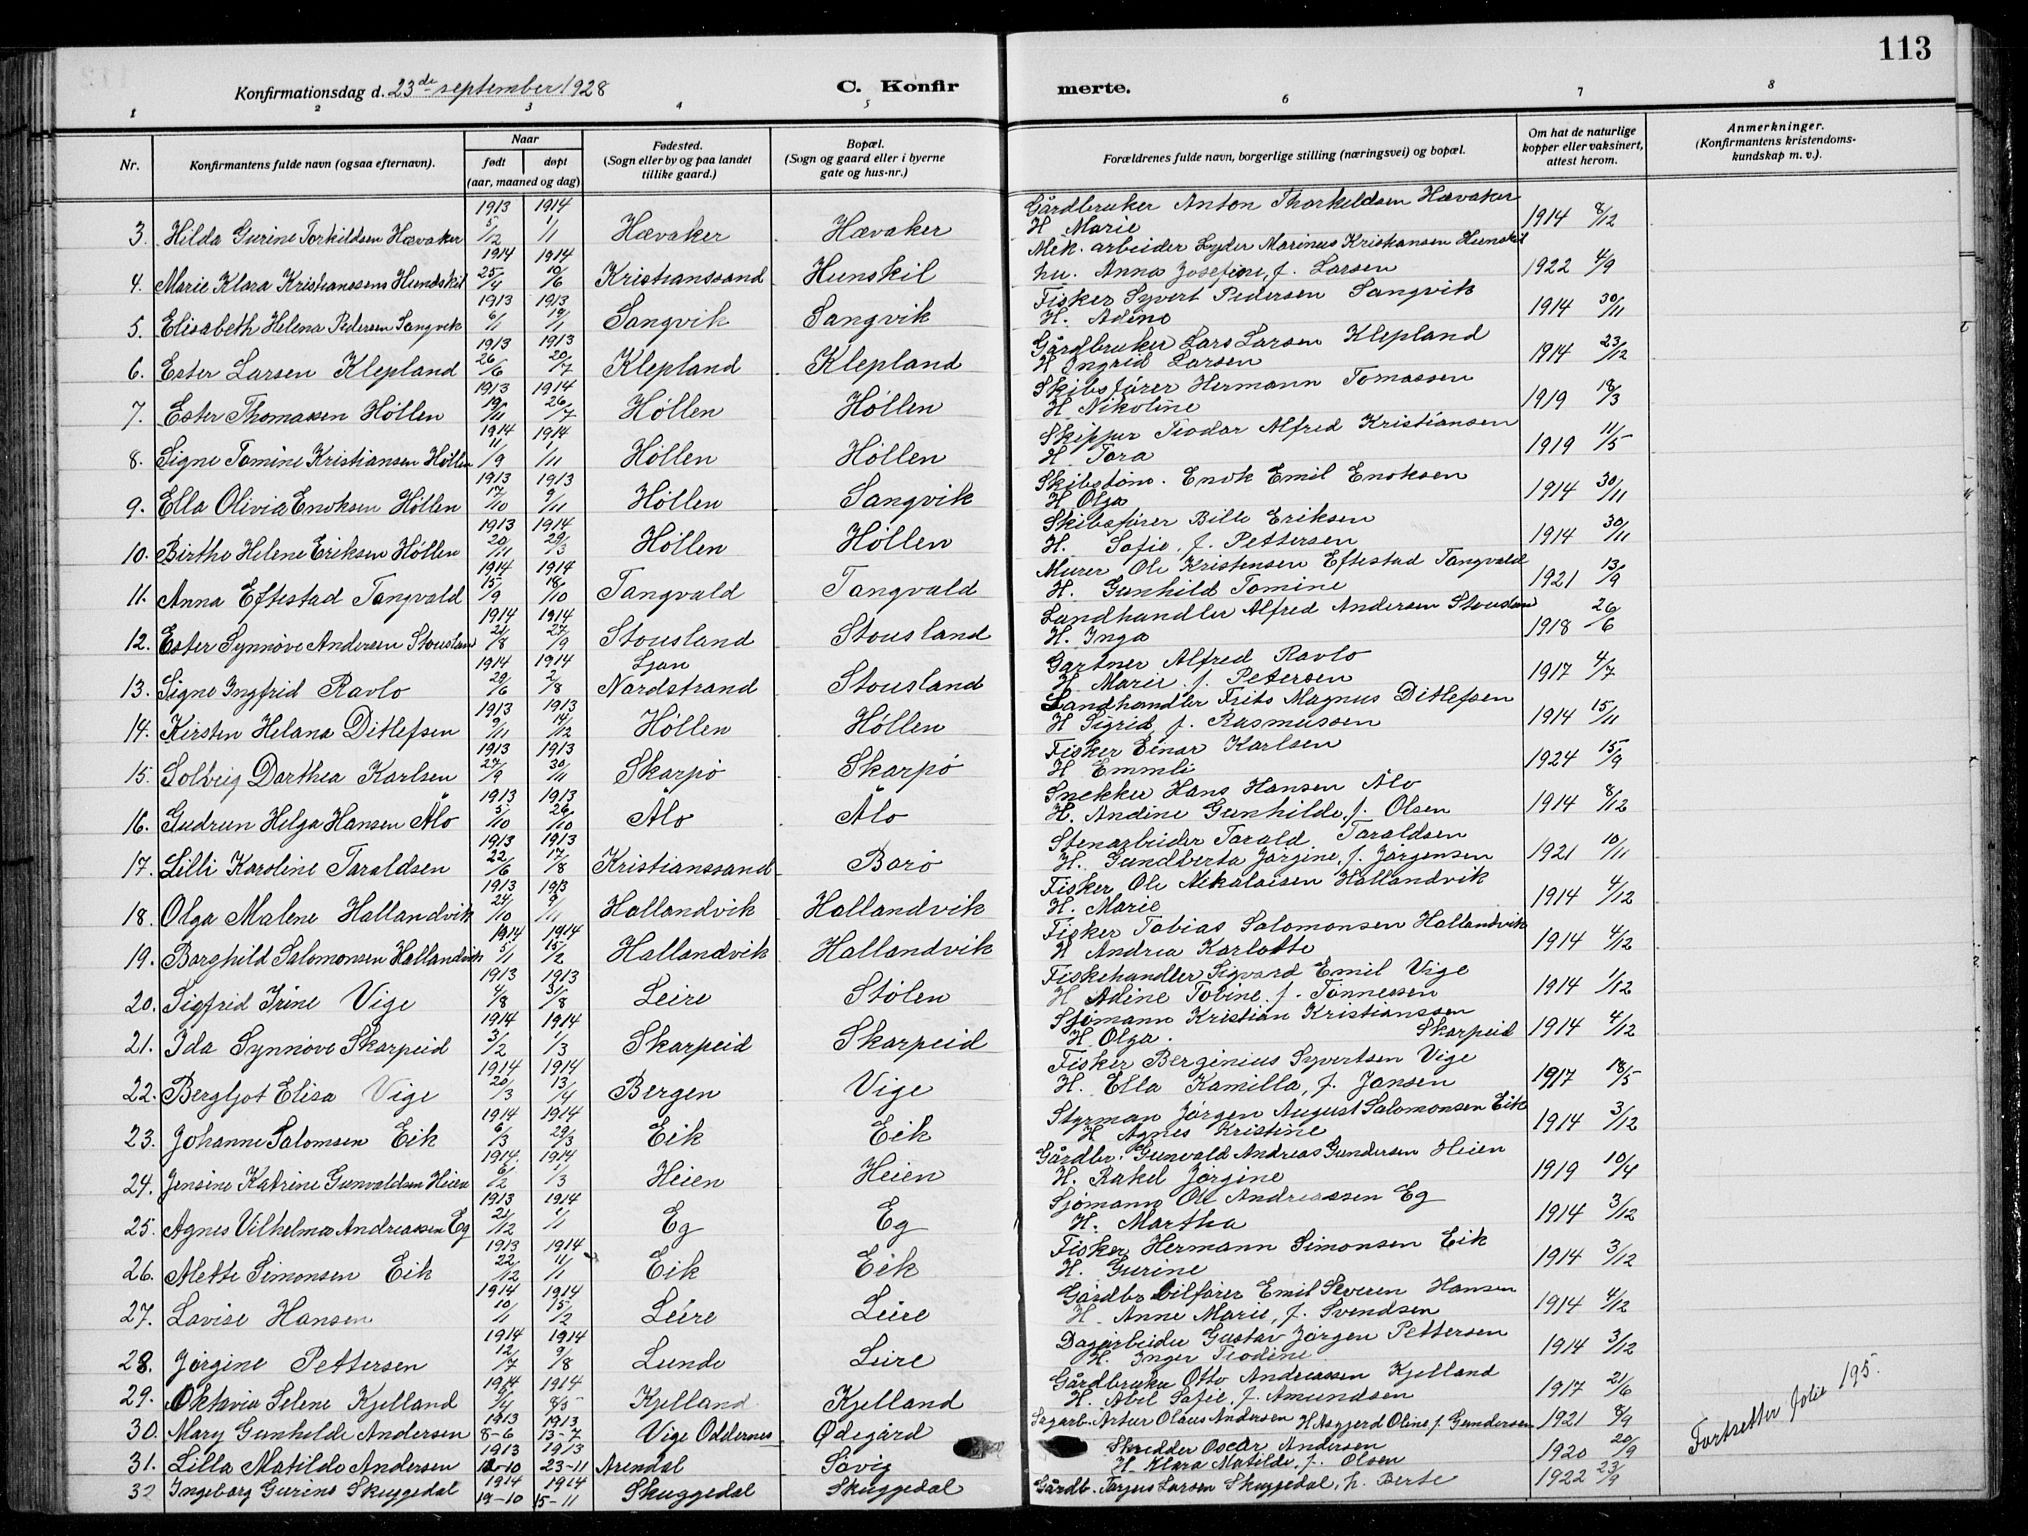 113
Konfirmationsdag d. 23de september 1928
C. Konfirmerte.
1 2 3 4 5 6 7 8
Nr. Konfirmantens fulde navn (ogsaa efternavn). Naar født døpt (aar, maaned og dag) Fødested. (Sogn eller by og paa landet tillike gaard.) Bopæl. (Sogn og gaard eller i byerne gate og hus-nr.) Forældrenes fulde navn, borgerlige stilling (næringsvei) og bopæl. Om hat de naturlige kopper eller vaksinert, attest herom. Anmerkninger. (Konfirmantens kristendoms-kundskap m. v.).
3. Hilda Gurine Torkildsen Hævaker 1913 5/12 1914 1/1 Hævaker Hævaker Gårdbruker Anton Thorkildsen Hævaker H Marie 1914 8/12
4. Marie Klara Kristianssens Hundskil 1914 25/4 1914 10/6 Kristianssand Hunskil Mek. arbeider Lyder Marinus Kristiansen Hunskil hu. Anna Josefine, f. Larsen 1922 4/9
5. Elisabeth Helena Pedersen Langvik 1913 6/1 1913 19/1 Langvik Langvik Fisker Syvert Pedersen Langvik H. Adine 1914 30/11
6. Ester Larsen Klepland 1913 26/6 1913 20/7 Klepland Klepland Gårdbruker Lars Larsen Klepland H Ingrid Larsen 1914 23/12
7. Ester Thomassen Høllen 1913 19/11 1914 26/7 Høllen Høllen Skibsfører Hermann Tomassen H Nikoline 1919 18/3
8. Signe Tomine Kristiansen Høllen 1914 11/9 1914 1/11 Høllen Høllen Skipper Teodor Alfred Kristiansen H. Tora 1919 11/5
9. Ella Olivia Enoksen Høllen 1913 17/10 1913 9/11 Høllen Langvik Skibstøm. Enok Emil Enoksen H Olga 1914 30/11
10. Birthe Helene Eriksen Høllen 1913 20/11 1914 29/3 Høllen Høllen Skibsfører Bille Eriksen H. Sofie f. Pettersen 1914 30/11
11. Anna Eftestad Tangvald 1914 15/9 1914 18/10 Tangvald Tangvald Murer Ole Kristensen Eftestad Tangvald H. Gunhild Tomine 1921 13/9
12. Ester Synnøve Andersen Stouslan 1914 21/8 1914 27/9 Stousland Stousland Landhandler Alfred Andersen Stouslan H. Inga 1918 26/6
13. Signe Ingfrid Ravlo 1914 29/6 1914 2/8 Ljan Nordstrand Stousland Gartner Alfred Ravlo H Marie f. Petersen 1917 4/7
14. Kirsten Helana Ditlefsen 1913 9/11 1913 14/12 Høllen Høllen Landhandler Frits Magnus Ditlefsen H Sigrid f. Rasmussen 1914 15/11
15. Solveig Dorthea Karlsen 1913 27/9 1913 30/11 Skarpø Skarpø Fisker Einar Karlsen H Emmli 1924 15/9
16. Gudrun Helga Hansen Ålo 1913 5/10 1913 26/10 Ålo Ålo Snekker Hans Hansen Ålo H. Andine Gunhilde, f. Olsen 1914 8/12
17. Lilli Karoline Taraldsen 1913 22/6 1913 17/8 Kristianssand Borø Stenarbeider Tarald Taraldsen H. Gundberta Jørgine, f. Jørgensen 1921 10/11
18. Olga Malene Hallandvik 1913 24/10 1913 9/11 Hallandvik Hallandvik Fisker Ole Nikolaisen Hallandvik H. Marie 1914 4/12
19. Borghild Salomonsen Hallandvik 1914 5/1 1914 15/2 Hallandvik Hallandvik Fisker Tobias Salomonsen Hallandvik H Andrea Karlotte 1914 4/12
20. Sigfrid Irine Vige 1913 4/8 1913 31/8 Leire Stølen Fiskehandler Sigvard Emil Vige H Adine Tobine f. Tønnessen 1914 1/12
21. Ida Synnøve Skarpeid 1914 3/2 1914 1/3 Skarpeid Skarpeid Sjømann Kristian Kristianssen Skarpeid H. Olga. 1914 4/12
22. Bergljot Elisa Vige 1914 20/3 1914 13/4 Bergen Vige Fisker Berginius Syvertsen Vige H. Ella Kamilla, f. Jansen 1917 18/5
23. Johanne Salomsen Eik 1914 6/3 1914 29/3 Eik Eik Styrman Jørgen August Salomonsen Eik H Agnes Kristine 1914 3/12
24. Jensine Katrine Gunvaldsen Heien 1914. 6/2 1914 1/3 Heien Heien Gårdbr. Gunvald Andreas Gundersen Heien H. Rakel Jørgine 1919 10/4
25. Agnes Vilhelma Andreassen Eg 1913 21/12 1914 1/1 Eg Eg Sjømann Ole Andreassen Eg H. Martha 1914 3/12
26. Mette Simonsen Eik 1913 22/12 1914 11/1 Eik Eik Fisker Hermann Simonsen Eik H. Gurine 1914 3/12
27. Lovise Hansen 1914 10/1 1914 15/2 Leire Leire Gårdbr bilfører Emil Severen Hansen H. Anne Marie, f. Svendsen 1914 4/12
28. Jørgine Pettersen 1914 12/7 1914 9/8 Lunde Leire Dagarbeider Gustav Jørgen Pettersen H. Inger Teodine 1914 3/12
29. Oktavia Selene Kjelland 1914 1914 Kjelland Kjelland Gårdbruker Otto Andreassen Kjelland H. Abel Sofie, f. Amundsen 1917 21/6
30. Mary Gunhilde Andersen 1913 8-6 1913 13-7 Vige Oddernes Ødegård Artur Olaus Andersen H Asgjerd Oline f. Gundersen 1921 8/9
31. Lilla Matilde Andersen 1913 12-10 1913 23-11 Arendal Søvig Skredder Oscar Andersen H. Klara Matilde, f. Olsen 1920 20/9
32 Ingeborg Gurine Skuggedal 1914 19-10 1914 15-11 Skuggedal Skuggedal Gårdb. Torjus Larsen Skuggedal, h. Berte 1922 23/9
Fortsetter folie 195.